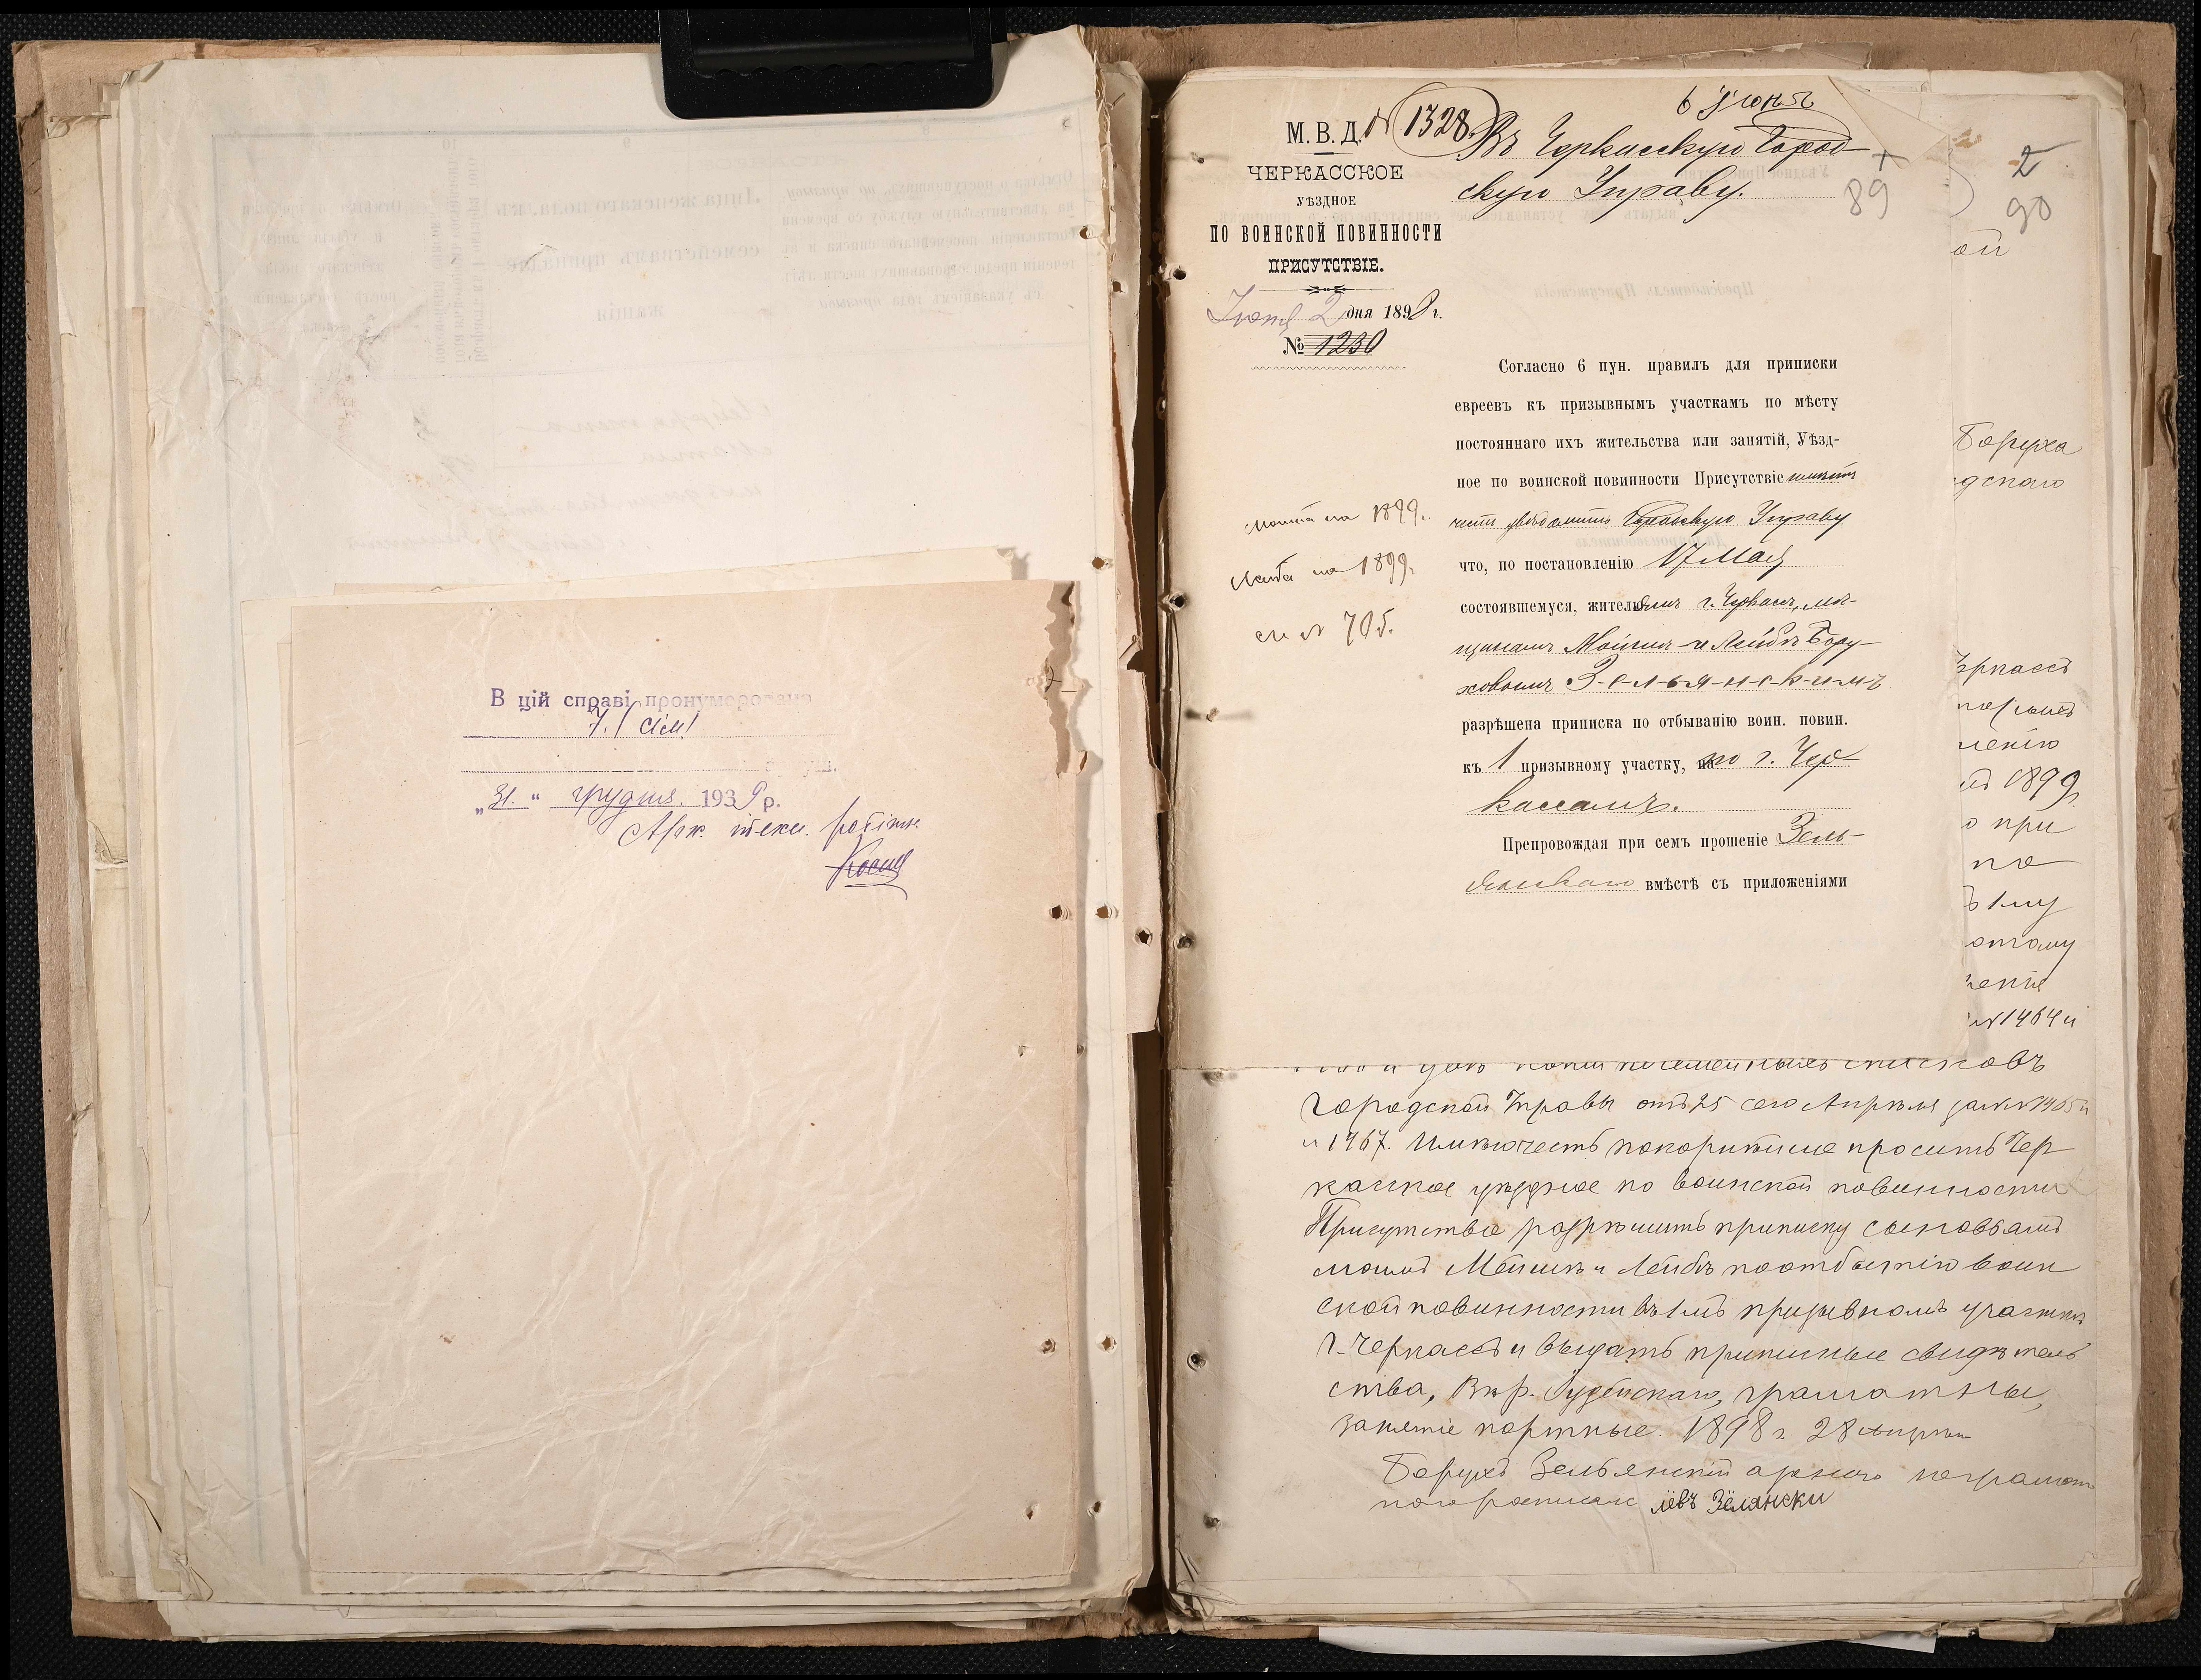 В цій справі пронумеровано
7. (сім)
"31." грудня. 1939 р.
Арх. техн. робітн.
М. В. Д. № 1328
6 Іюня
ЧЕРКАССКОЕ
УѢЗДНОЕ
ПО ВОИНСКОЙ ПОВИННОСТИ
ПРИСУТСТВІЕ.
Іюня 2 дня 1898 г.
№ 1230
Въ Черкасскую Город-
скую Управу.
89
2
90
Согласно 6 пун. правилъ для приписки
евреевъ къ призывнымъ участкамъ по мѣсту
постояннаго ихъ жительства или занятій, Уѣзд-
ное по воинской повинности Присутствіе имѣетъ
честь увѣдомить Городскую Управу
что, по постановленію 17 Мая
состоявшемуся, жителямъ г. Черкассъ, мѣ-
щанамъ Мойшѣ и Лейбѣ Бору-
ховымъ З-е-л-ь-я-н-с-к-и-м-ъ
разрѣшена приписка по отбыванію воин. повин.
къ 1 призывному участку, по г. Чер-
кассамъ.
Препровождая при семъ прошеніе Зель-
янскаго вмѣстѣ съ приложеніями
на 1899.
на 1899 г.
№ 705.
ой
Боруха
дскаго
еркассъ
ленію
1899 г.
о при
по
1 му
этому
№ 1464 и
списковъ
Городской Управы отъ 25 сего Апрѣля за №№ 1465 и
и 1467. Имѣю честь покорнѣйше просить Чер
касское уѣздное по воинской повинности
Присутствіе разрѣшить приписку сыновьямъ
моимъ Мойшѣ и Лейбѣ по отбытію воин
ской повинности въ 1 мъ призывномъ участкѣ
г. Черкассъ и выдать приписные свидѣтель
ства, Вѣр. Іудейскаго, грамотные,
занятіе портные. 1898 г. 28 Апрѣля
Борухъ Зельянскій а за него неграмот
наго росписался лёвъ Зёлянски